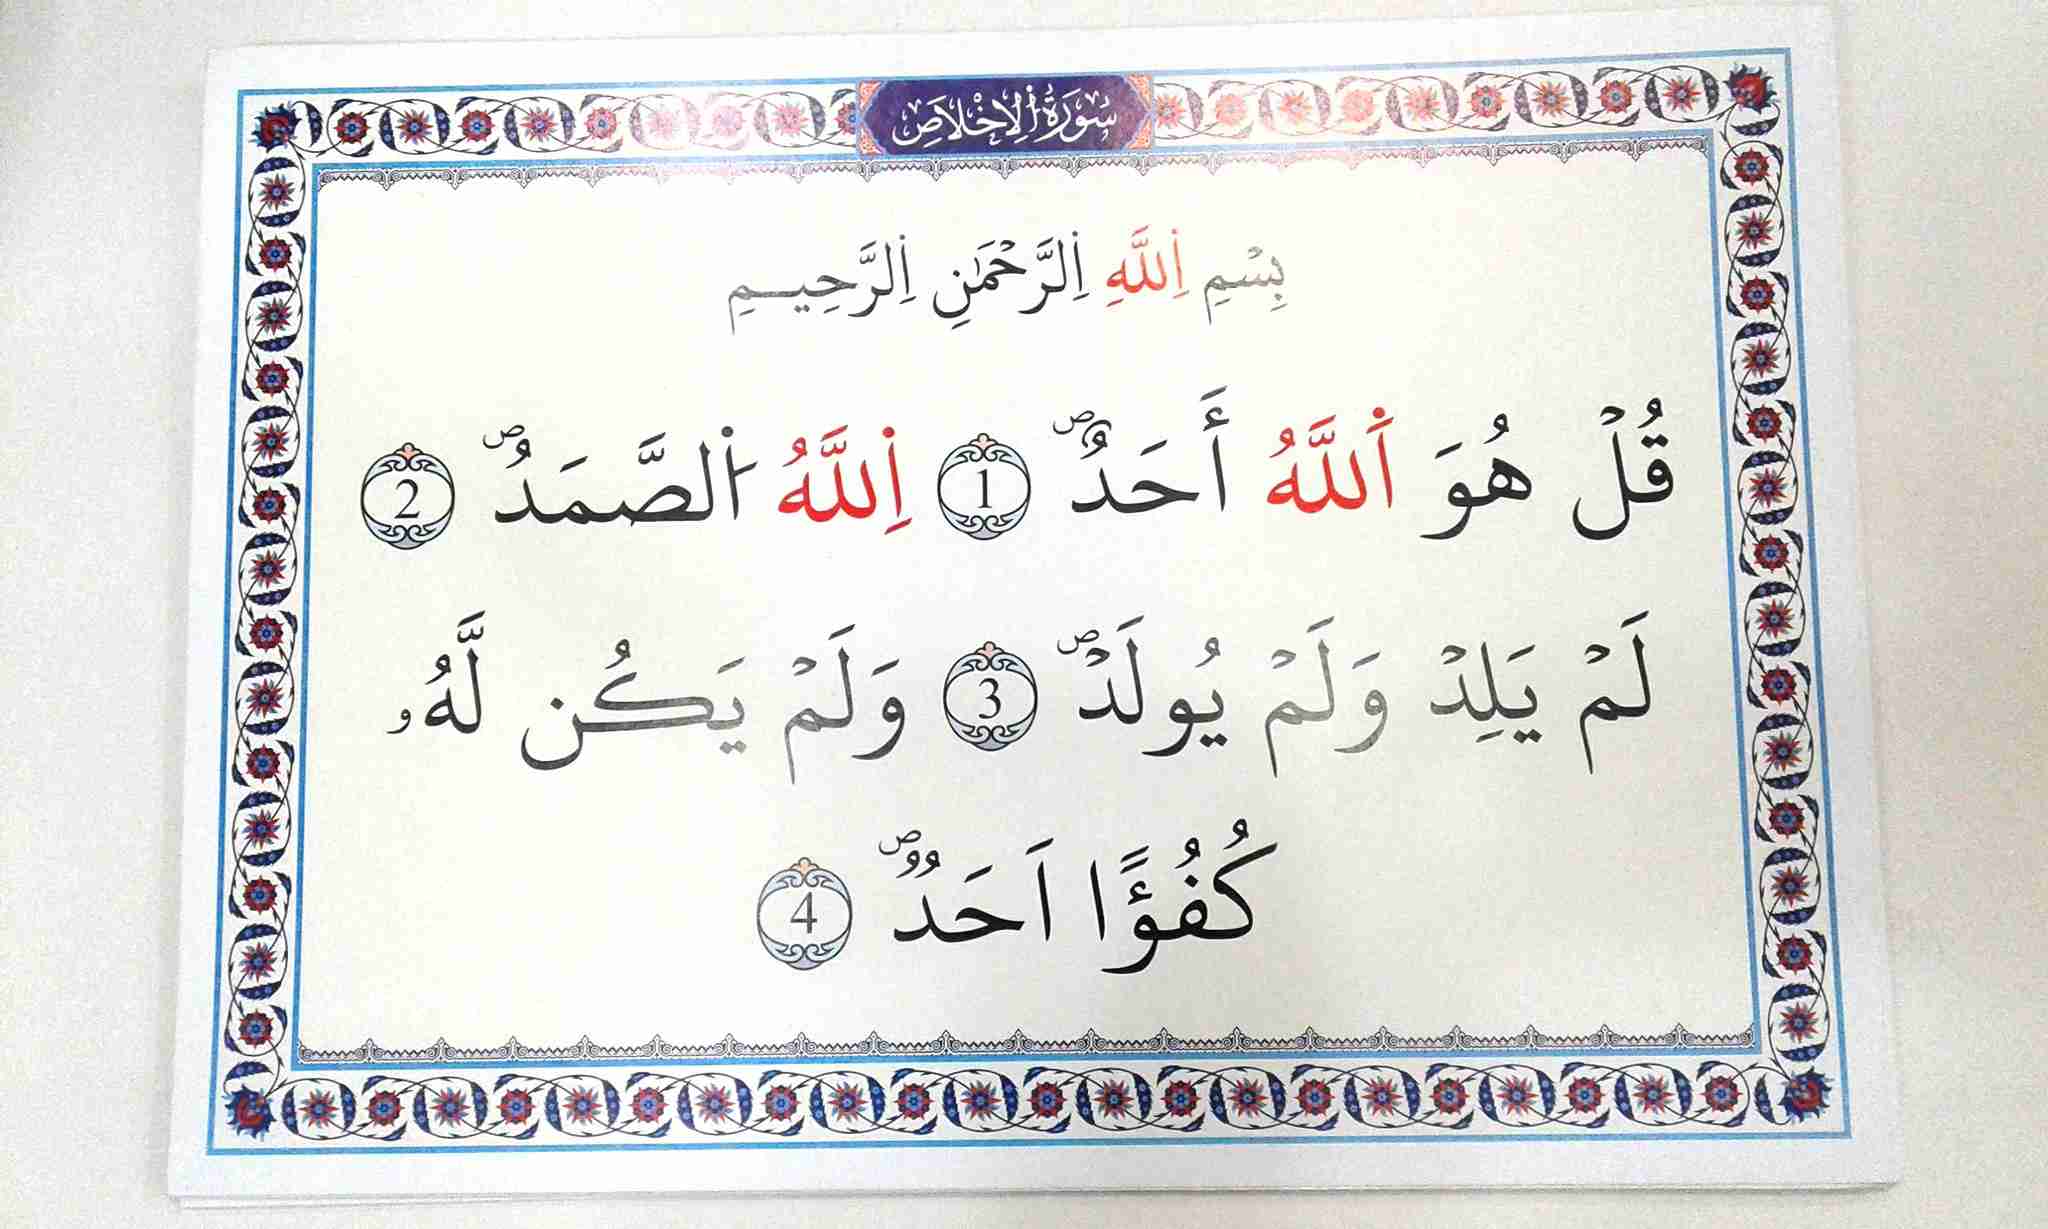 سُورَةُ الْإِخْلَاصِ
بِسْمِ اِ۬للَّهِ اِ۬لرَّحْمَٰنِ اِ۬لرَّحِيمِ
قُلْ هُوَ اَ۬للَّهُ أَحَدٌۖ 1 اِ۬للَّهُ اُ۬لصَّمَدُۖ 2
لَمْ يَلِدْ وَلَمْ يُولَدْۖ 3 وَلَمْ يَكُن لَّهُۥ
كُفُؤًا اَحَدٌۖ 4